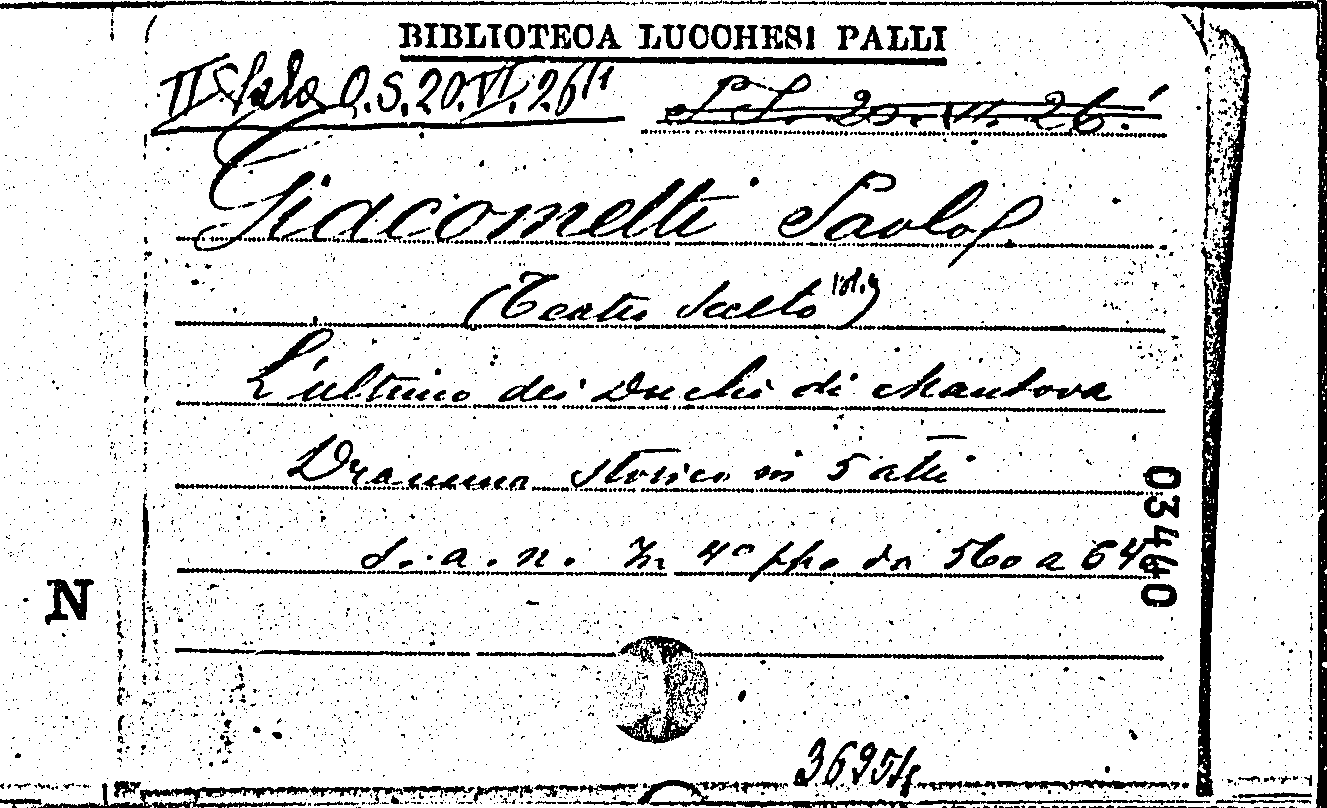 BIBLIOTECA LUCCHESI PALLI
II Sala Q.S.20.VI.26
20.VI.26
Giacometti Paolo
(Teatro Scelto vol. 2)
L'ultimo dei Duchi di Mantova
Dramma storico in 5 atti
s. a. n. In 4° ppo da 560 a 640
03440
N
36254